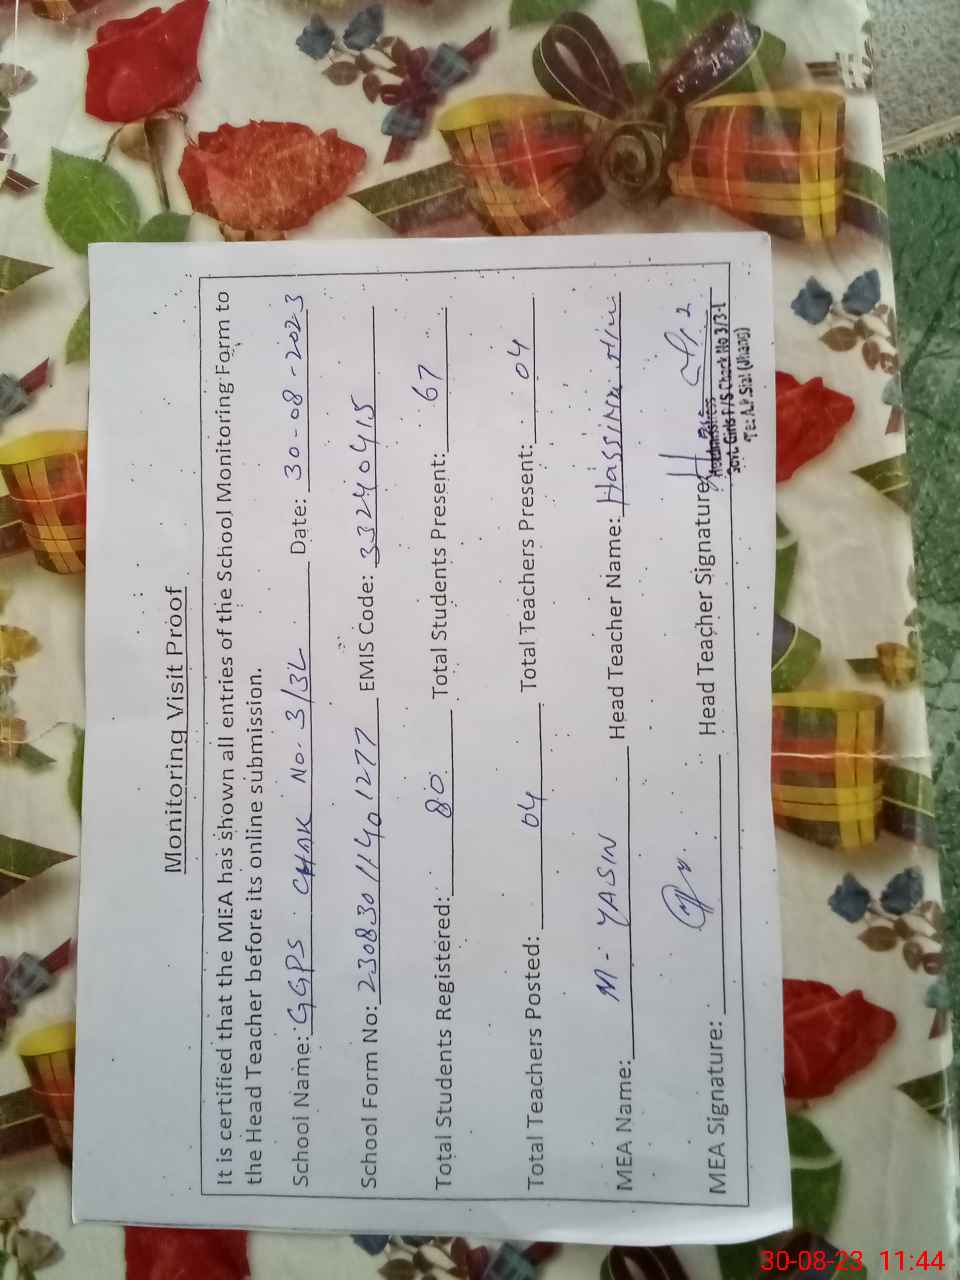 Monitoring Visit Proof
It is certified that the MEA has shown all entries of the School Monitoring Form to
the Head Teacher before its online submission.
School Name: GGPS CHAK No. 3/3L Date: 30-08-2023
School Form No: 23083011401277 EMIS Code: 33240415
Total Students Registered: 80 Total Students Present: 67
Total Teachers Posted: 04 Total Teachers Present: 04
MEA Name: M. YASIN Head Teacher Name: Hassina
MEA Signature: Head Teacher Signature:
Headmistress
Govt. Girls P/S Chack No 3/3-L
Te: A.P. Sial (Jhang)
30-08-23 11:44